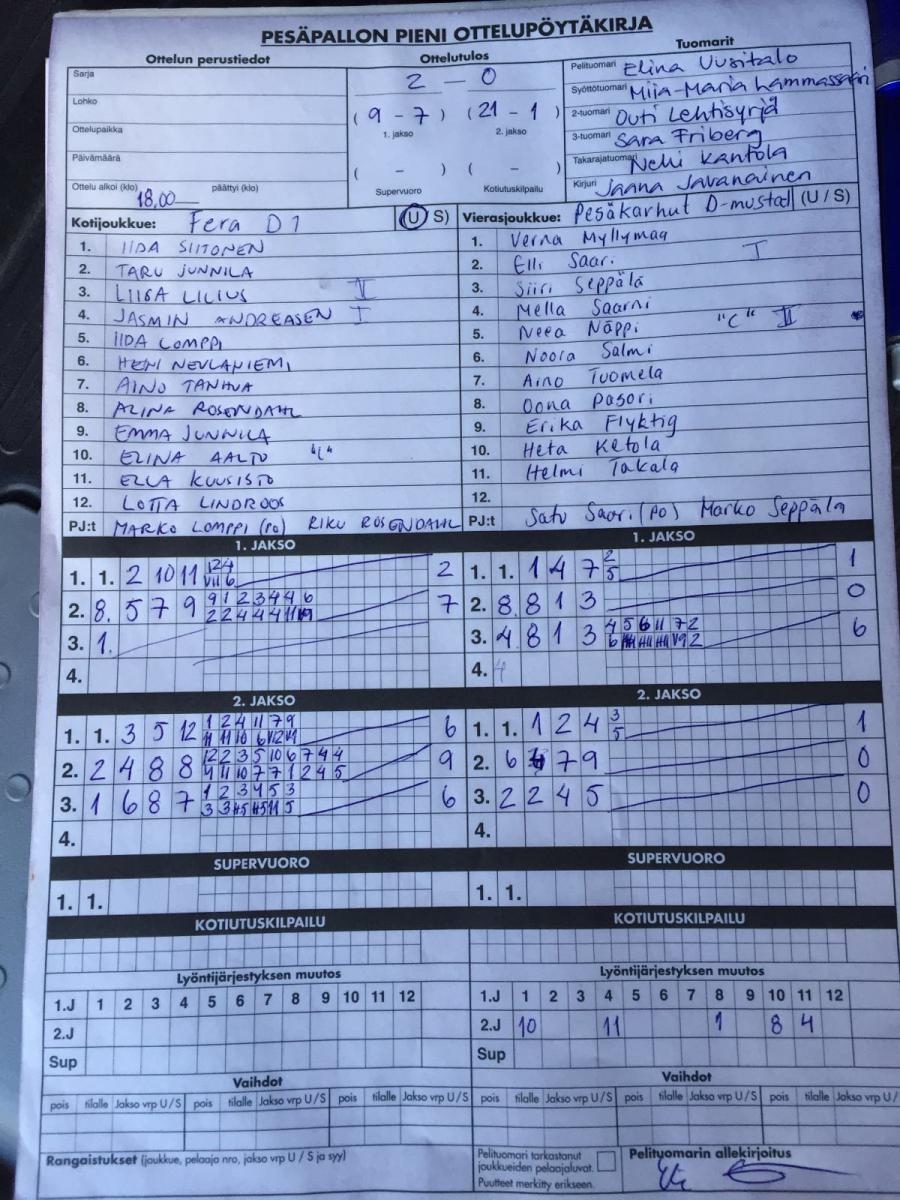 PESÄPALLON PIENI OTTELUPÖYTÄKIRJA
Ottelun perustiedot
Sarja
Lohko
Ottelupaikka
Päivämäärä
Ottelu alkoi (klo) 18,00 päättyi (klo)
Ottelutulos
2 - 0
(9 - 7) (21 - 1)
1. jakso 2. jakso
( - ) ( - )
Supervuoro Kotiutuskilpailu
Tuomarit
Pelituomari Elina Uusitalo
Syöttötuomari Miia-Maria Lammassaari
2-tuomari Outi Lehtisyrjä
3-tuomari Sara Friberg
Takarajatuomari Kantola
Kirjuri Jaana Javanainen
Kotijoukkue: Fera D1 (U / S)
1. IIDA SIITONEN
2. TARU JUNNILA
3. LIISA LILIUS II
4. JASMIN ANDREASEN I
5. IIDA LOMPPI
6. HENI NEVLANIEMI
7. AINO TANHUA
8. ALINA ROSENDAHL
9. EMMA JUNNILA
10. ELINA AALTO "C"
11. ELLA KUUSISTO
12. LOTTA LINDROOS
PJ:t MARKO LOMPPI (PO) RIKU ROSENDAHL
Vierasjoukkue: Pesäkarhut D-mustat (U / S)
1. Verna Myllymaa
2. Elli Saari I
3. Siiri Seppälä
4. Mella Saarni
5. Neea Näppi "C" II
6. Noora Salmi
7. Aino Tuomela
8. Oona Pasori
9. Erika Flyktig
10. Heta Ketola
11. Helmi Takala
12.
PJ:t Satu Saari (PO) Marko Seppälä
1. JAKSO
1. 1. 2 10 11 2
2. 8. 5 7 9 9 1 2 3 4 4 6 7
3. 1.
4.
1. JAKSO
1. 1. 1 4 7 2 1
5
2. 8. 8 1 3 0
3. 4 8 1 3 4 5 6 11 7 2 6
4. 4
2. JAKSO
1. 1. 3 5 12 1 2 4 11 7 9 6
2. 2 4 8 8 12 2 3 5 10 6 7 4 4 9
4 11 10 7 7 1 2 4 5
3. 1 6 8 7 1 2 3 4 5 3 6
4.
2. JAKSO
1. 1. 1 2 4 3 1
5
2. 6 7 9 0
3. 2 2 4 5 0
4.
SUPERVUORO
1. 1.
SUPERVUORO
1. 1.
KOTIUTUSKILPAILU
KOTIUTUSKILPAILU
Lyöntijärjestyksen muutos
1.J 1 2 3 4 5 6 7 8 9 10 11 12
2.J
Sup
Lyöntijärjestyksen muutos
1.J 1 2 3 4 5 6 7 8 9 10 11 12
2.J 10 11 1 8 4
Sup
Vaihdot
pois tilalle Jakso vrp U / S pois tilalle Jakso vrp U / S pois tilalle Jakso vrp U / S
Vaihdot
pois tilalle Jakso vrp U / S pois tilalle Jakso vrp U / S pois tilalle Jakso vrp U /
Rangaistukset (joukkue, pelaaja nro, jakso vrp U / S ja syy)
Pelituomari tarkastanut
joukkueiden pelaajaluvat.
Puutteet merkitty erikseen.
Pelituomarin allekirjoitus